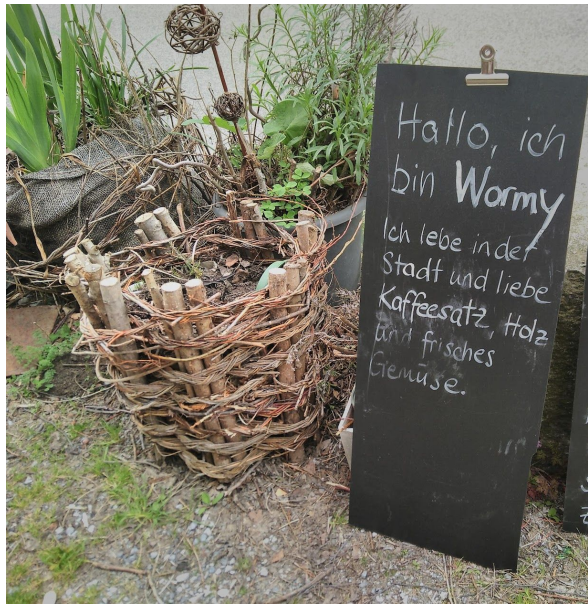 Hallo, ich
bin Wormy
Ich lebe in der
Stadt und liebe
Kaffeesatz, Holz
und frisches
Gemüse.